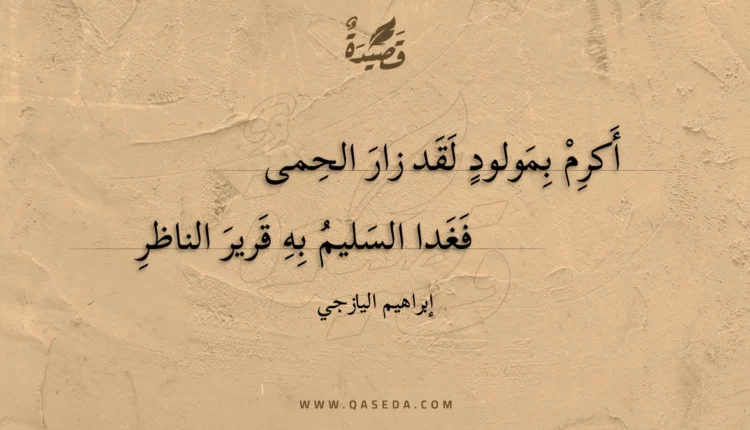 قَصِيْدَةٌ
أَكرِمْ بِمَولودٍ لَقَد زارَ الحِمى
فَغَدا السَليمُ بِهِ قَريرَ الناظرِ
إبراهيم اليازجي
WWW.QASEDA.COM